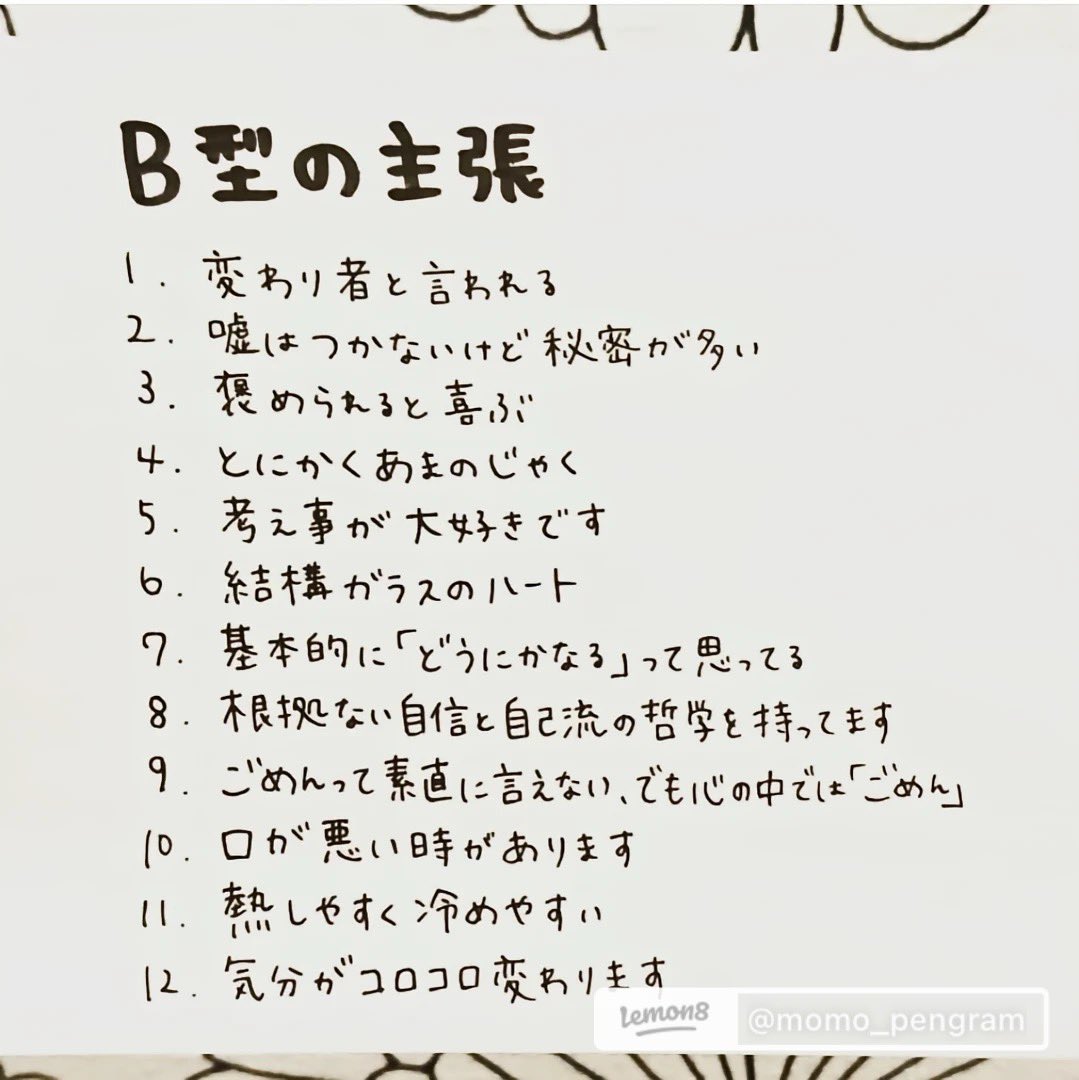 B型の主張
1. 変わり者と言われる
2. 嘘はつかないけど秘密が多い
3. 褒められると喜ぶ
4. とにかくあまのじゃく
5. 考え事が大好きです
6. 結構ガラスのハート
7. 基本的に「どうにかなる」って思ってる
8. 根拠ない自信と自己流の哲学を持ってます
9. ごめんって素直に言えない、でも心の中では「ごめん」
10. 口が悪い時があります
11. 熱しやすく冷めやすい
12. 気分がコロコロ変わります
Lemon8 @momo_pengram